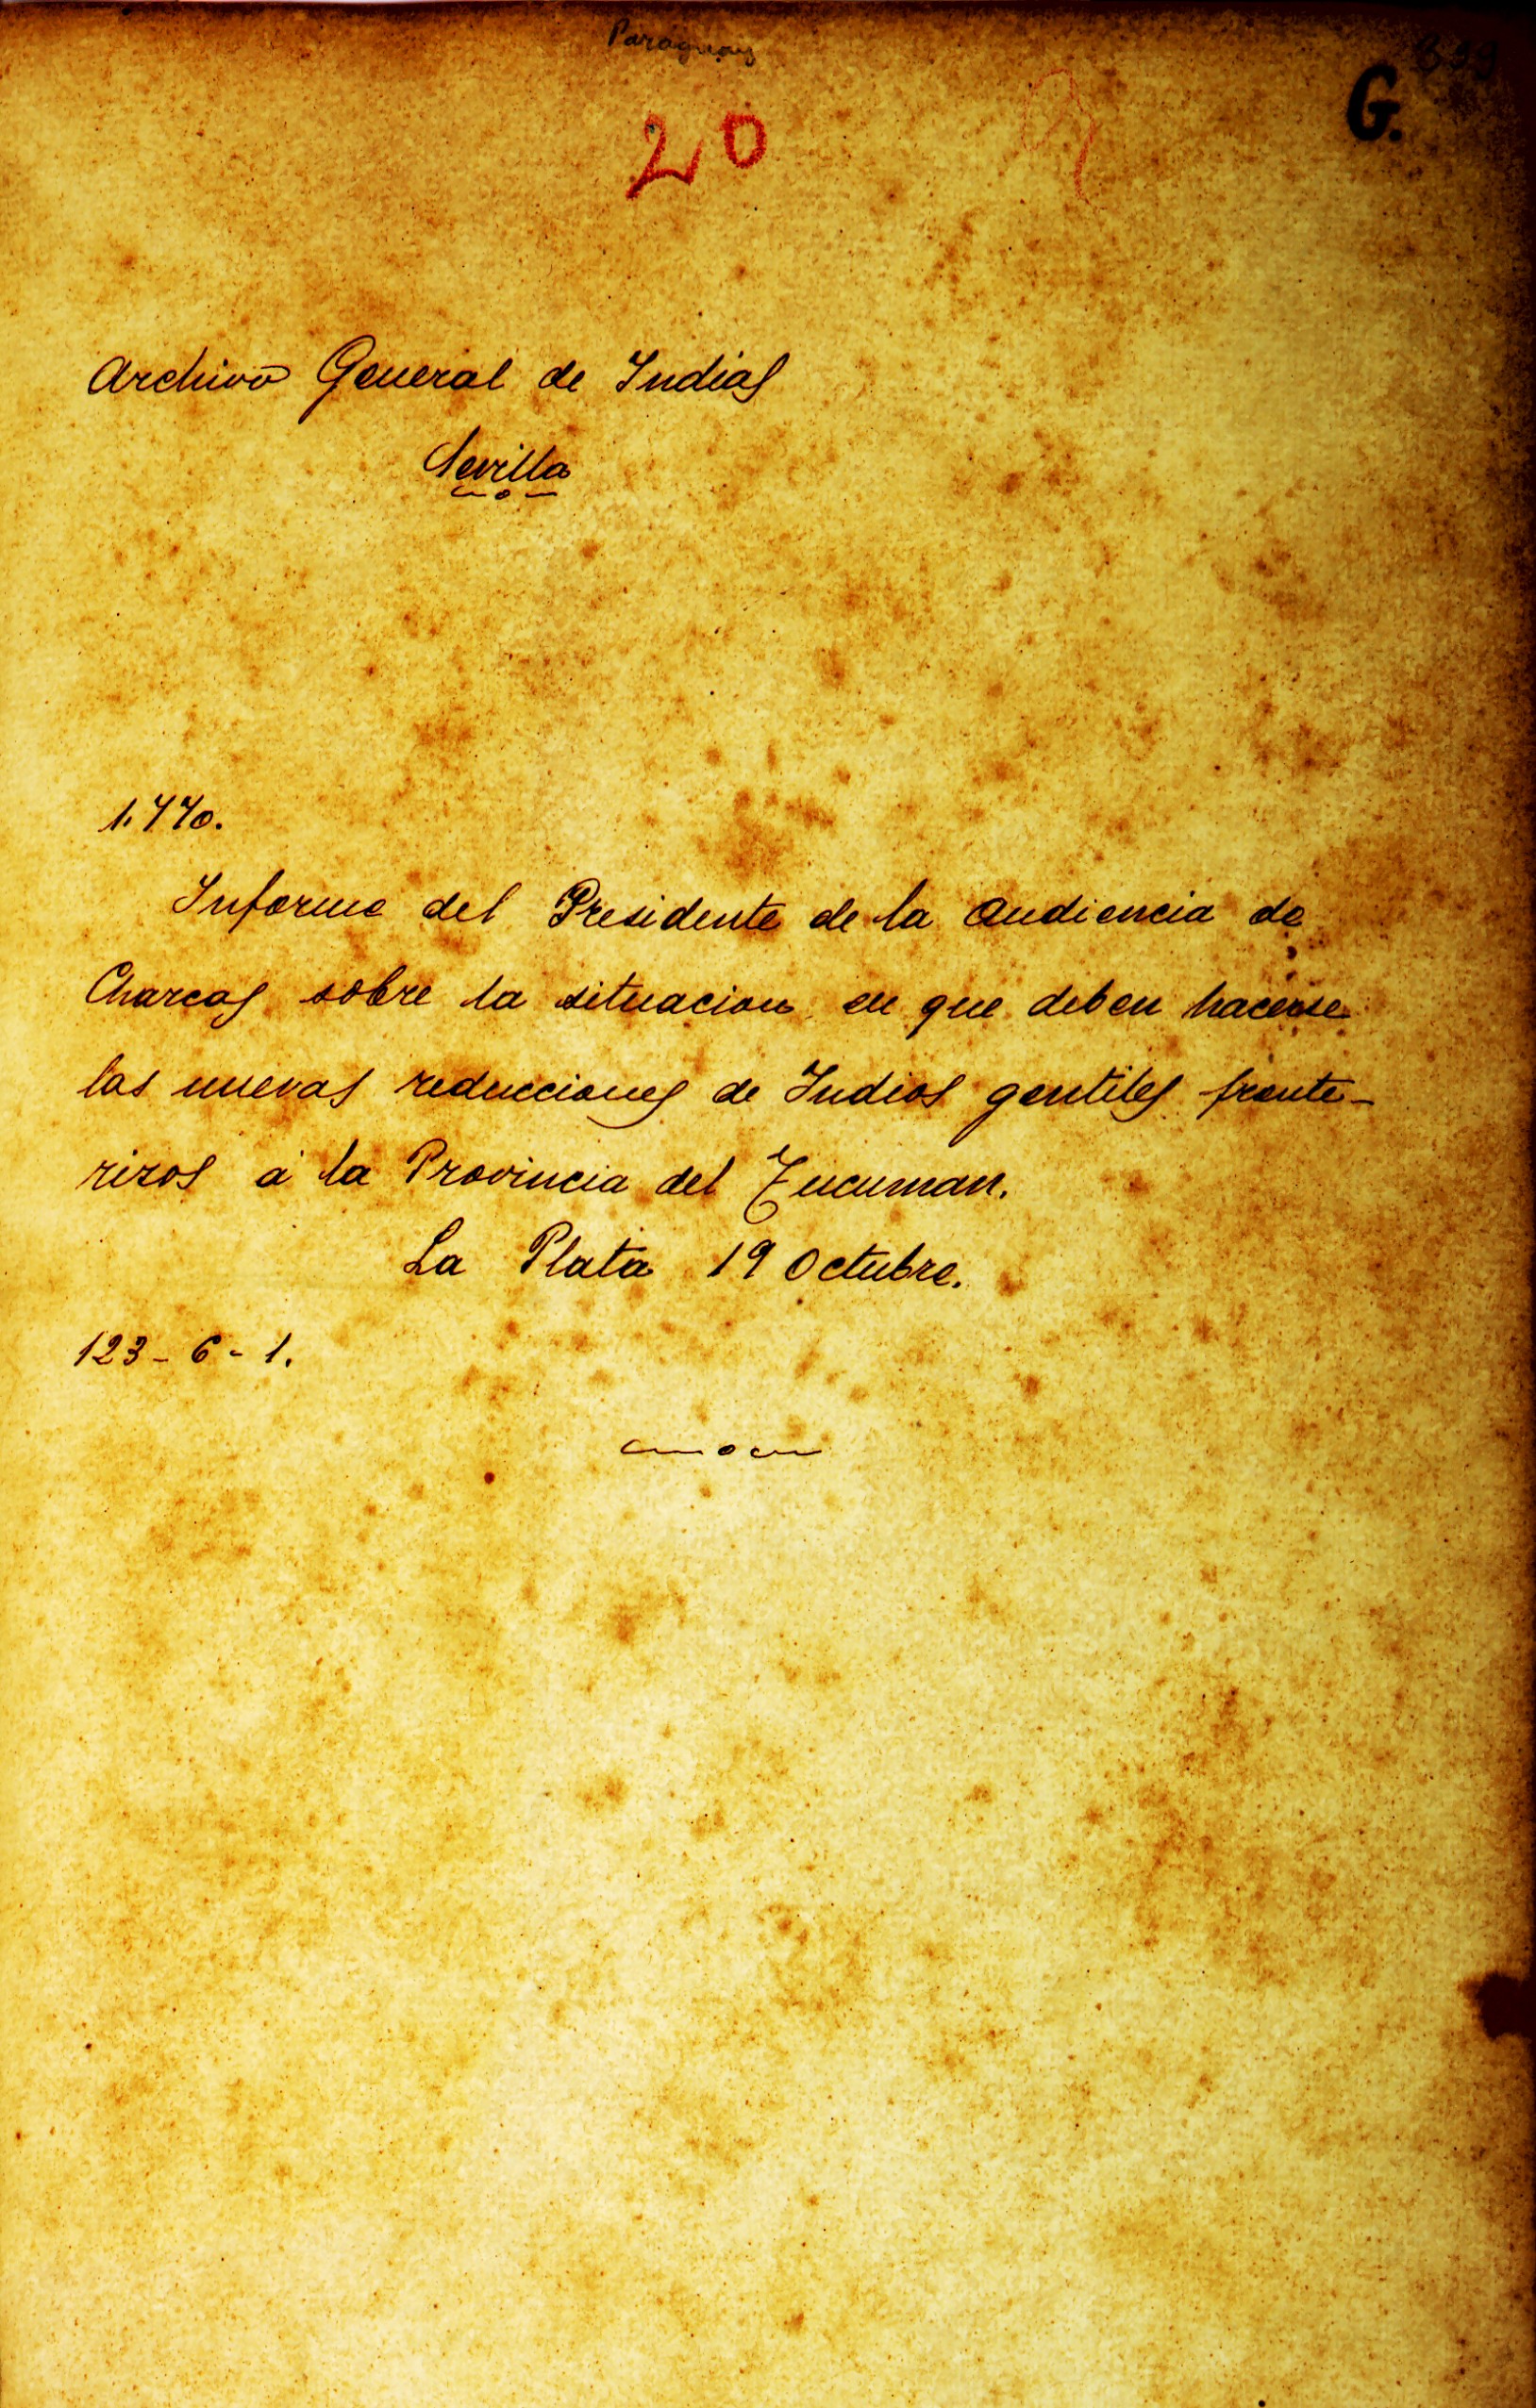 Paraguay
G.
20
Archivo General de Indias
Sevilla
1.770.
Informe del Presidente de la Audiencia de
Charcas sobre la situacion en que deben hacerse
las nuevas reducciones de Indios gentiles fronte-
rizos á la Provincia del Tucuman.
La Plata 19 Octubre.
123-6-1.